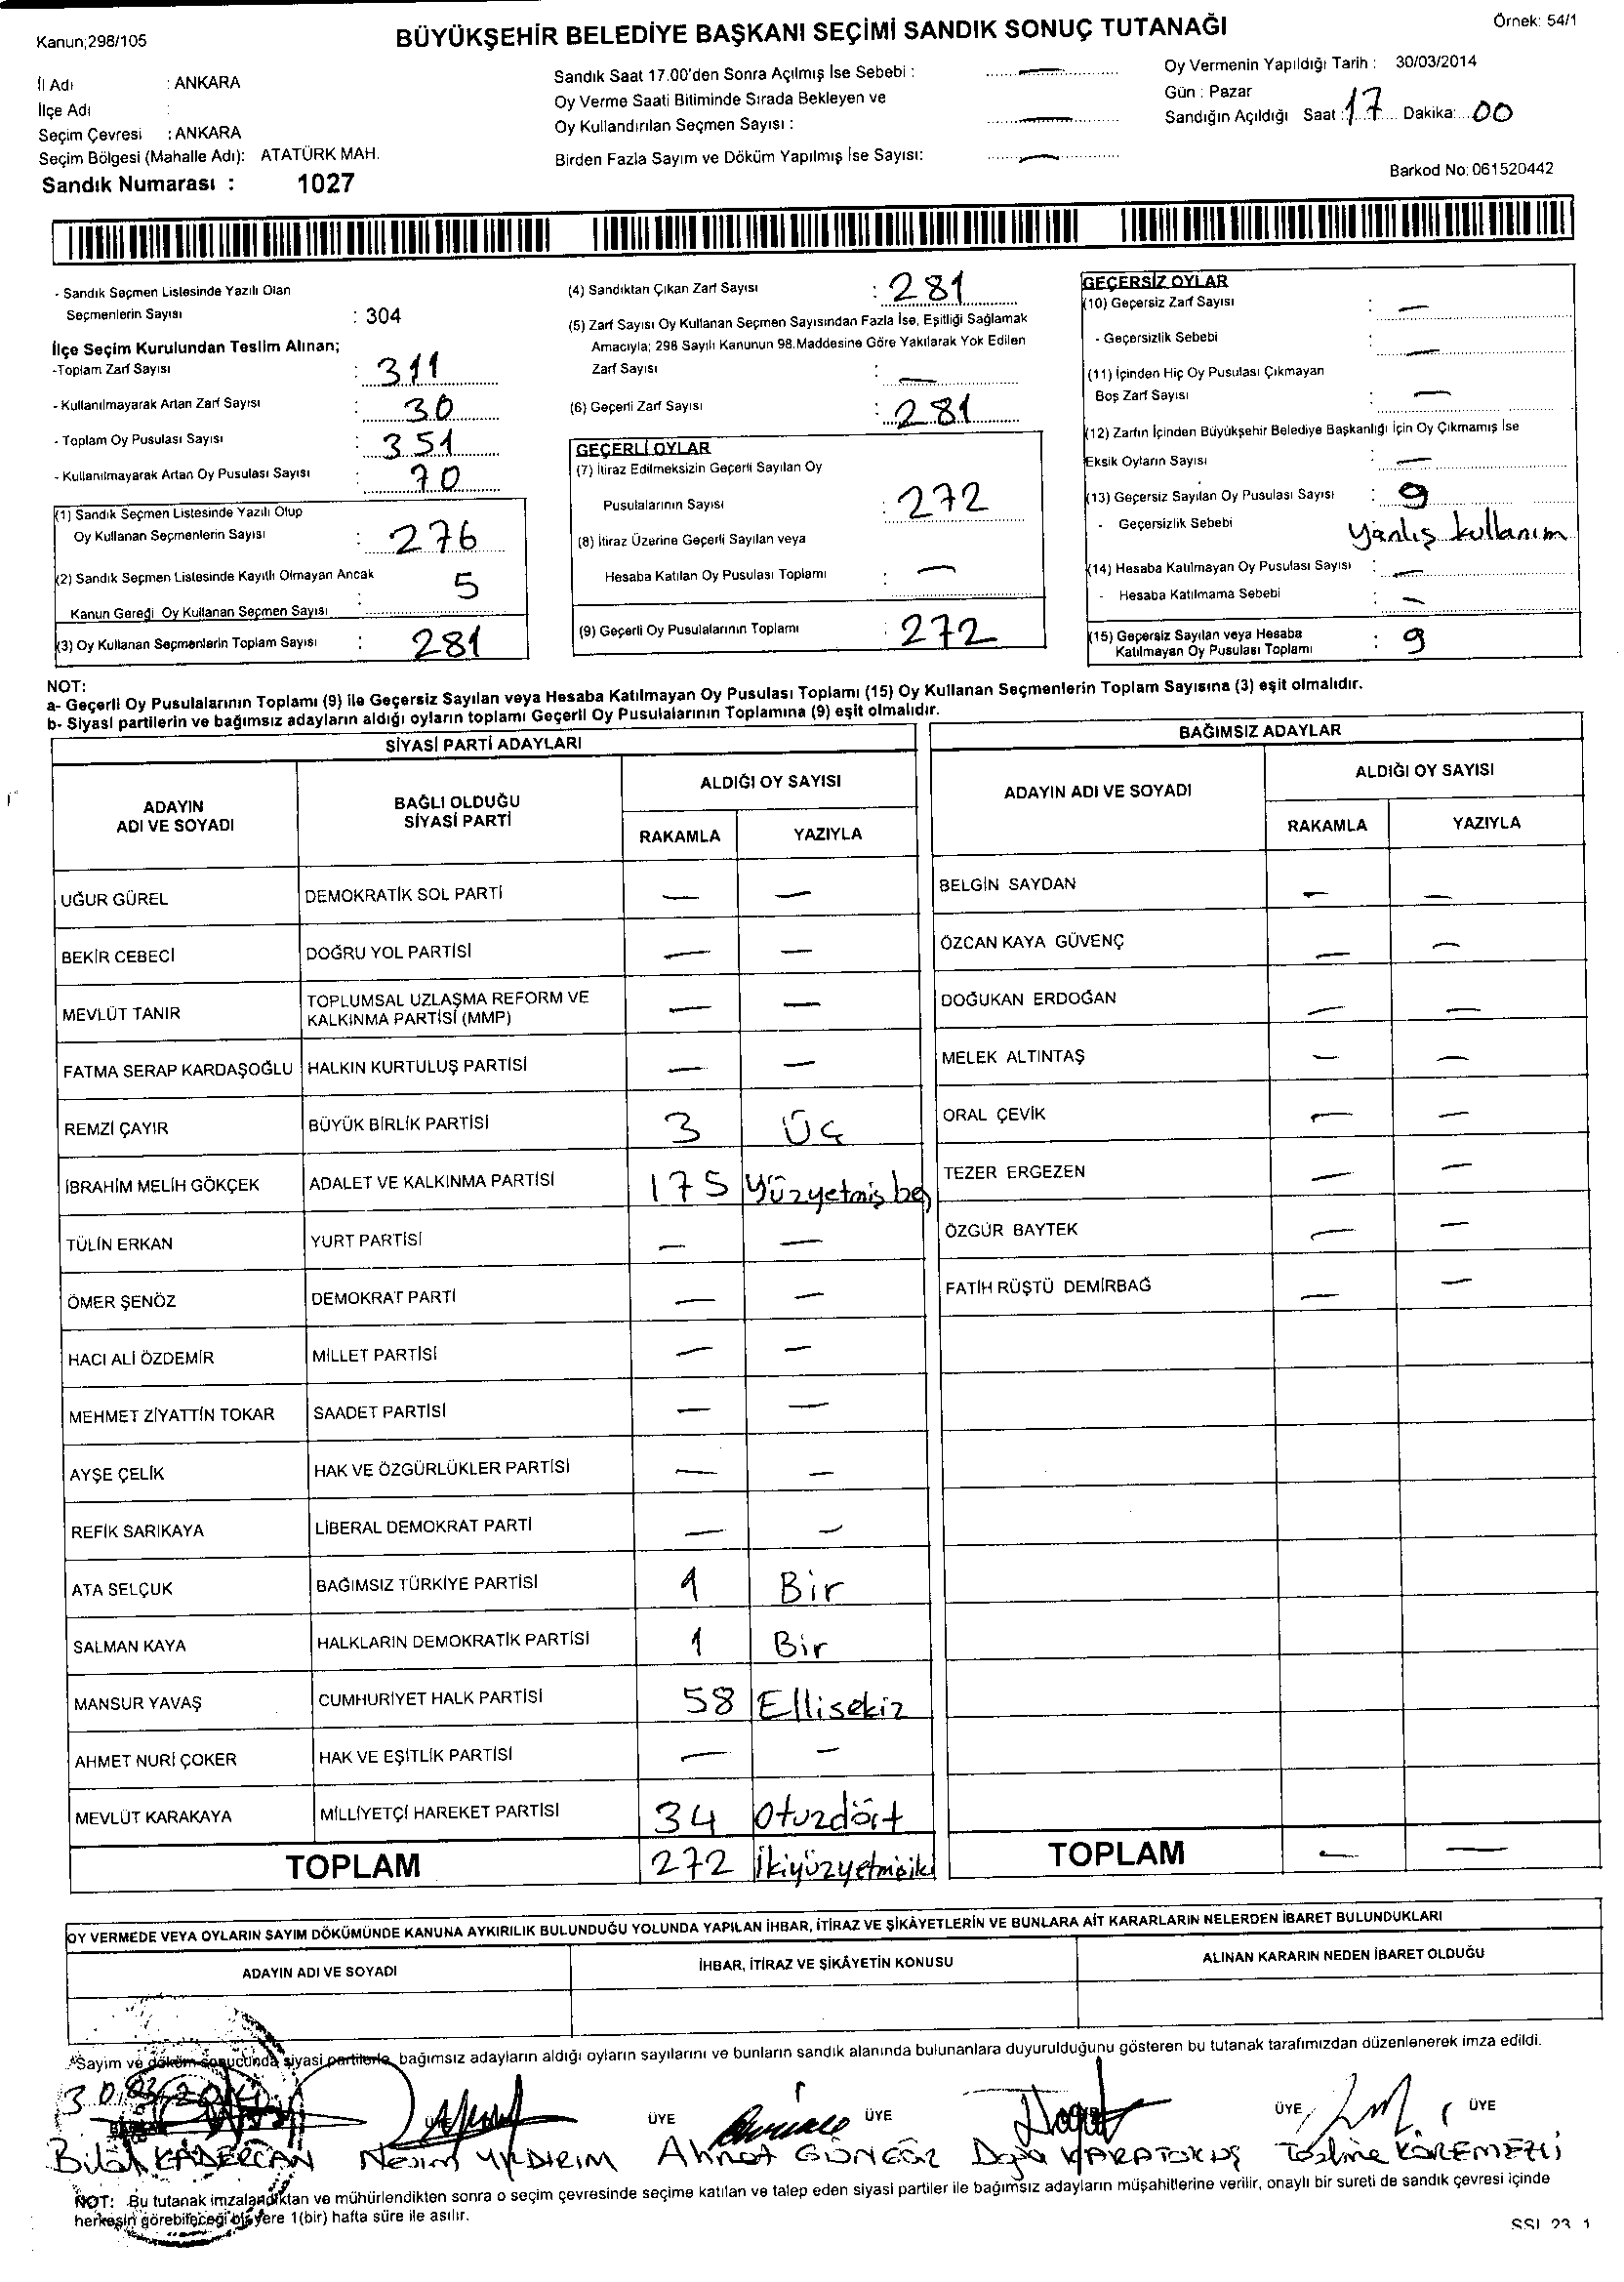 Kanun;298/105
BÜYÜKŞEHİR BELEDİYE BAŞKANI SEÇİMİ SANDIK SONUÇ TUTANAĞI
Örnek: 54/1
İl Adı : ANKARA
İlçe Adı :
Seçim Çevresi : ANKARA
Seçim Bölgesi (Mahalle Adı): ATATÜRK MAH.
Sandık Numarası : 1027
Sandık Saat 17.00'den Sonra Açılmış İse Sebebi : —
Oy Verme Saati Bitiminde Sırada Bekleyen ve
Oy Kullandırılan Seçmen Sayısı : —
Birden Fazla Sayım ve Döküm Yapılmış İse Sayısı: —
Oy Vermenin Yapıldığı Tarih : 30/03/2014
Gün : Pazar
Sandığın Açıldığı Saat : 17 Dakika: 00
Barkod No: 061520442
- Sandık Seçmen Listesinde Yazılı Olan
Seçmenlerin Sayısı : 304
İlçe Seçim Kurulundan Teslim Alınan;
-Toplam Zarf Sayısı : 311
- Kullanılmayarak Artan Zarf Sayısı : 30
- Toplam Oy Pusulası Sayısı : 351
- Kullanılmayarak Artan Oy Pusulası Sayısı : 70
(1) Sandık Seçmen Listesinde Yazılı Olup
Oy Kullanan Seçmenlerin Sayısı : 276
(2) Sandık Seçmen Listesinde Kayıtlı Olmayan Ancak
Kanun Gereği Oy Kullanan Seçmen Sayısı : 5
(3) Oy Kullanan Seçmenlerin Toplam Sayısı : 281
(4) Sandıktan Çıkan Zarf Sayısı : 281
(5) Zarf Sayısı Oy Kullanan Seçmen Sayısından Fazla İse, Eşitliği Sağlamak
Amacıyla; 298 Sayılı Kanunun 98.Maddesine Göre Yakılarak Yok Edilen
Zarf Sayısı : —
(6) Geçerli Zarf Sayısı : 281
GEÇERLİ OYLAR
(7) İtiraz Edilmeksizin Geçerli Sayılan Oy
Pusulalarının Sayısı : 272
(8) İtiraz Üzerine Geçerli Sayılan veya
Hesaba Katılan Oy Pusulası Toplamı : —
(9) Geçerli Oy Pusulalarının Toplamı : 272
GEÇERSİZ OYLAR
(10) Geçersiz Zarf Sayısı : —
- Geçersizlik Sebebi : —
(11) İçinden Hiç Oy Pusulası Çıkmayan
Boş Zarf Sayısı : —
(12) Zarfın İçinden Büyükşehir Belediye Başkanlığı İçin Oy Çıkmamış İse
Eksik Oyların Sayısı : —
(13) Geçersiz Sayılan Oy Pusulası Sayısı : 9
- Geçersizlik Sebebi Yanlış kullanım
(14) Hesaba Katılmayan Oy Pusulası Sayısı : —
- Hesaba Katılmama Sebebi : —
(15) Geçersiz Sayılan veya Hesaba
Katılmayan Oy Pusulası Toplamı : 9
NOT:
a- Geçerli Oy Pusulalarının Toplamı (9) ile Geçersiz Sayılan veya Hesaba Katılmayan Oy Pusulası Toplamı (15) Oy Kullanan Seçmenlerin Toplam Sayısına (3) eşit olmalıdır.
b- Siyasi partilerin ve bağımsız adayların aldığı oyların toplamı Geçerli Oy Pusulalarının Toplamına (9) eşit olmalıdır.
SİYASİ PARTİ ADAYLARI
ADAYIN ADI VE SOYADI BAĞLI OLDUĞU SİYASİ PARTİ ALDIĞI OY SAYISI
RAKAMLA YAZIYLA
UĞUR GÜREL DEMOKRATİK SOL PARTİ — —
BEKİR CEBECİ DOĞRU YOL PARTİSİ — —
MEVLÜT TANIR TOPLUMSAL UZLAŞMA REFORM VE KALKINMA PARTİSİ (MMP) — —
FATMA SERAP KARDAŞOĞLU HALKIN KURTULUŞ PARTİSİ — —
REMZİ ÇAYIR BÜYÜK BİRLİK PARTİSİ 3 Üç
İBRAHİM MELİH GÖKÇEK ADALET VE KALKINMA PARTİSİ 175 Yüzyetmiş beş
TÜLİN ERKAN YURT PARTİSİ — —
ÖMER ŞENÖZ DEMOKRAT PARTİ — —
HACI ALİ ÖZDEMİR MİLLET PARTİSİ — —
MEHMET ZİYATTİN TOKAR SAADET PARTİSİ — —
AYŞE ÇELİK HAK VE ÖZGÜRLÜKLER PARTİSİ — —
REFİK SARIKAYA LİBERAL DEMOKRAT PARTİ — —
ATA SELÇUK BAĞIMSIZ TÜRKİYE PARTİSİ 1 Bir
SALMAN KAYA HALKLARIN DEMOKRATİK PARTİSİ 1 Bir
MANSUR YAVAŞ CUMHURİYET HALK PARTİSİ 58 Ellisekiz
AHMET NURİ ÇOKER HAK VE EŞİTLİK PARTİSİ — —
MEVLÜT KARAKAYA MİLLİYETÇİ HAREKET PARTİSİ 34 Otuzdört
TOPLAM 272 İkiyüzyetmişiki
BAĞIMSIZ ADAYLAR
ADAYIN ADI VE SOYADI ALDIĞI OY SAYISI
RAKAMLA YAZIYLA
BELGİN SAYDAN — —
ÖZCAN KAYA GÜVENÇ — —
DOĞUKAN ERDOĞAN — —
MELEK ALTINTAŞ — —
ORAL ÇEVİK — —
TEZER ERGEZEN — —
ÖZGÜR BAYTEK — —
FATİH RÜŞTÜ DEMİRBAĞ — —
TOPLAM — —
OY VERMEDE VEYA OYLARIN SAYIM DÖKÜMÜNDE KANUNA AYKIRILIK BULUNDUĞU YOLUNDA YAPILAN İHBAR, İTİRAZ VE ŞİKÂYETLERİN VE BUNLARA AİT KARARLARIN NELERDEN İBARET BULUNDUKLARI
ADAYIN ADI VE SOYADI İHBAR, İTİRAZ VE ŞİKÂYETİN KONUSU ALINAN KARARIN NEDEN İBARET OLDUĞU
Sayım ve döküm sonucunda siyasi partilerle, bağımsız adayların aldığı oyların sayılarını ve bunların sandık alanında bulunanlara duyurulduğunu gösteren bu tutanak tarafımızdan düzenlenerek imza edildi.
30/03/2014
ÜYE ÜYE ÜYE ÜYE
Bilal KADERCAN Nesim YILDIRIM Ahmet GÜNGÖR
NOT: Bu tutanak imzalandıktan ve mühürlendikten sonra o seçim çevresinde seçime katılan ve talep eden siyasi partiler ile bağımsız adayların müşahitlerine verilir, onaylı bir sureti de sandık çevresi içinde
herkesin görebileceği bir yere 1(bir) hafta süre ile asılır.